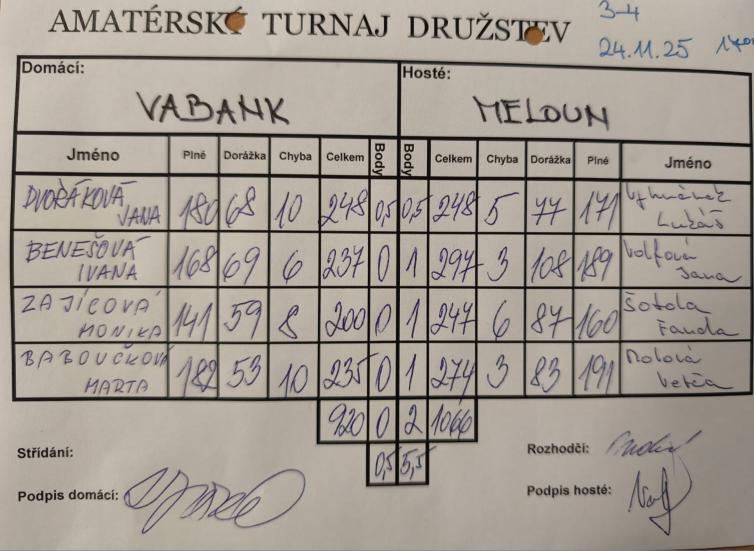 AMATÉRSKÝ TURNAJ DRUŽSTEV
3-4
24.11.25 1700
Domácí: Hosté:
VABANK MELOUN
Jméno Plné Dorážka Chyba Celkem Body Body Celkem Chyba Dorážka Plné Jméno
DVOŘÁKOVÁ JANA 180 68 10 248 0,5 0,5 248 5 77 171 Lukáš
BENEŠOVÁ IVANA 168 69 6 237 0 1 297 3 108 189 Volfová Jana
ZAJÍCOVÁ MONIKA 141 59 8 200 0 1 247 6 87 160 Šotola Fanda
BABOUČKOVÁ MARTA 182 53 10 235 0 1 274 3 83 191
920 0 2 1066
0,5 5,5
Střídání: Rozhodčí:
Podpis domácí: Podpis hosté: